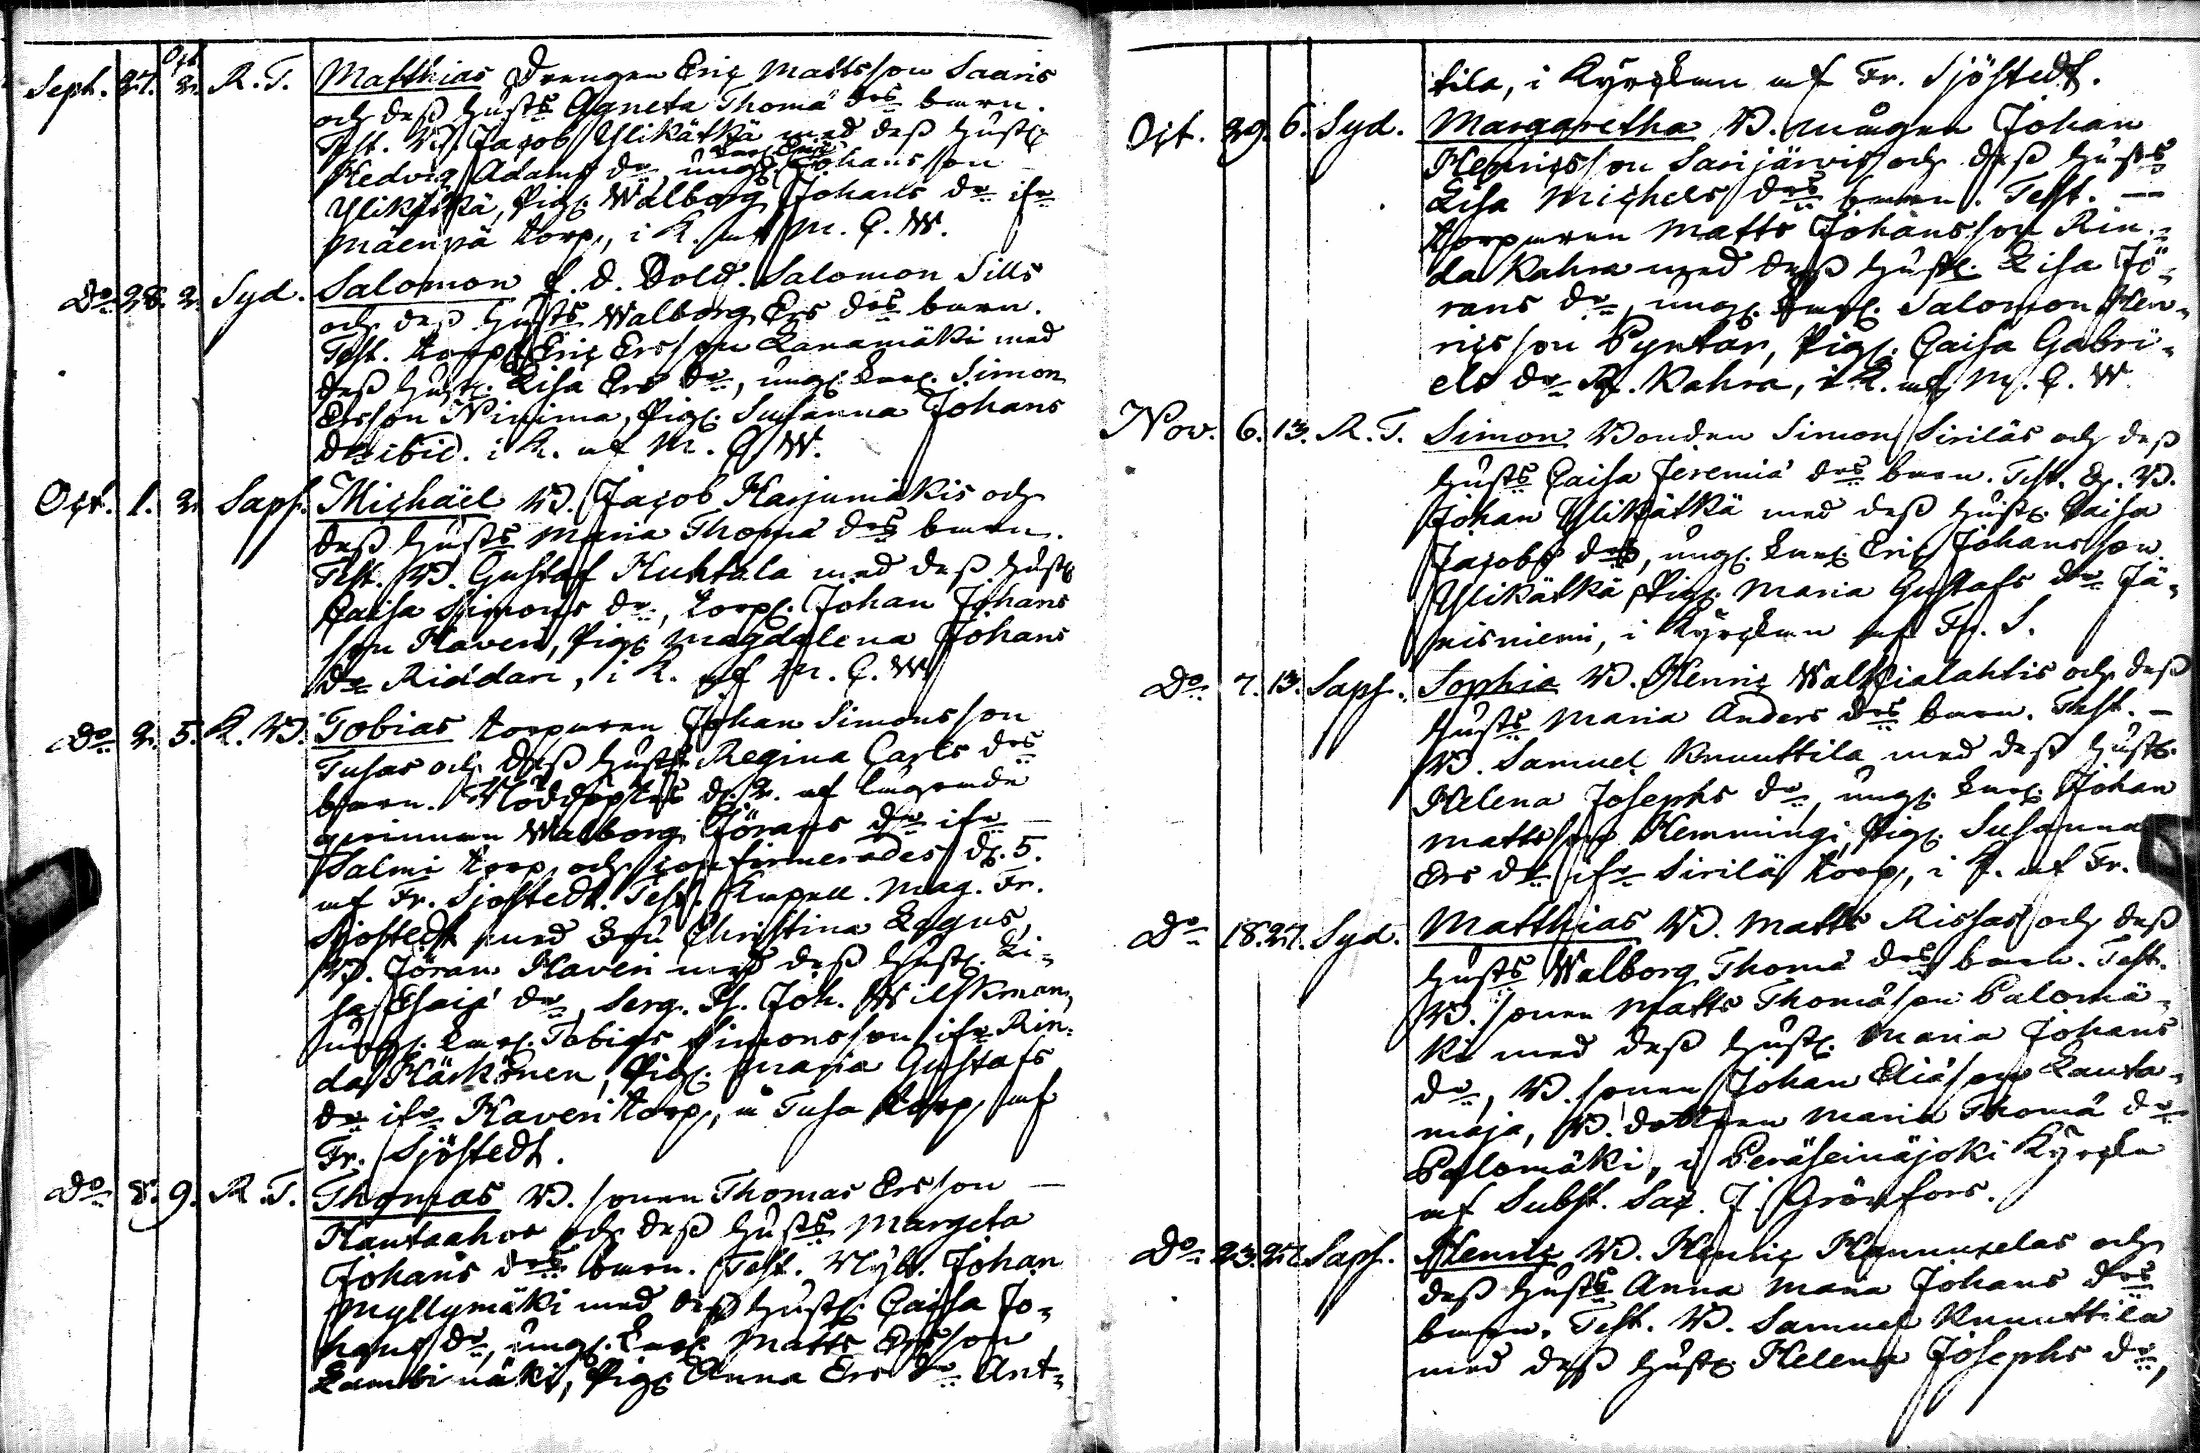 Oct.
Sept. 27. 2. R. T. Matthias Drengen Eric Mattsson Saaris
och dess hust:s Agneta Thomæ d:rs barn.
Test. B. Jacob Ylikätkä med dess hust:
Hedvig Adams d:r, ung: karl: Eric Johansson
Ylikätkä, Pig: Walborg Johans d:r ifr:
Mäenpä torp, i K. af M. C. W.
D:o 28. 2. Syd. Salomon f. d. Sold. Salomon Sills
och dess hust:s Walborg Ers d:rs barn.
Test. torp: Eric Ersson Kanamäki med
dess hust: Lisa Ers d:r, ung: karl: Simon
Ersson Ninima, Pig: Susanna Johans
d:r ibid. i K. af M. C. W.
Oct. 1. 2. Saph. Michäel B. Jacob Harjumäkis och
dess hust:s Maria Thomæ d:rs barn.
Test. B. Gustaf Huhtala med dess hust:
Caisa Simons d:r, torp: Johan Johans
son Haveri, Pig: Magdalena Johans
d:r Riddari, i K. af M. C. W.
D:o 2. 5. K. B. Tobias torparen Johan Simonsson
Tusas och dess hust:s Regina Carls d:rs
barn. Nöddöptes d. 2. af
qvinnan Walborg Jörans d:r ifr:
Salmi torp och confirmerades d. 5.
af Fr. Sjöstedt. Test. Capell. Mag. Fr.
Sjöstedt med Fru Christina
B. Jöran Haveri med dess hust: Li-
sa Esaiæ d:r, Serg. H. Joh. Wilskman,
ung: karl: Tobias Simonsson ifr: Rin-
da Härkönen, Pig: Maria Gustafs
d:r ifr: Haveri torp, i Tusa torp, af
Fr. Sjöstedt.
D:o 8. 9. R. T. Thomas B. sonen Thomas Ersson
Hautaahos och dess hust:s Margeta
Johans d:rs barn. Test. Nyb. Johan
Myllymäki med dess hust: Caisa Jo-
hans d:r, ung: karl: Matts Ersson
Lambinäki, Pig: Anna Ers d:r Ant-
tila, i Kyrckan af Fr. Sjöstedt.
Oct. 29. 6. Syd. Margaretha B. mågen Johan
Henricsson Sarijärvis och dess hust:s
Lisa Michels d:rs barn. Test.
torparen Matts Johansson Rin-
da Kahra med dess hust: Lisa Jö-
rans d:r, ung: karl: Salomon Hen-
ricsson Pyntäri, Pig: Caisa Gabri-
els d:r R. Kahra, i K. af M. C. W
Nov. 6. 13. R. T. Simon Bonden Simon Siriläs och dess
hust:s Caisa Jeremiæ d:rs barn. Test. B.
Johan Ylikätkä med dess hust: Caisa
Jacobs d:r, ung: karl: Eric Johansson
Ylikätkä Pig: Maria Gustafs d:r Jä-
nisniemi, i Kyrckan af Fr. S.
D:o 7. 13. Saph. Sophia B. Henric Walkialahtis och dess
hust:s Maria Anders d:rs barn. Test.
B. Samuel Knuuttila med dess hust:
Helena Josephs d:r, ung: karl: Johan
Mattsson Hemmingi, Pig: Susanna
Ers d:r ifr: Sirilä torp, i K. af Fr.
D:o 18. 27. Syd. Matthias B. Matts Rissas och dess
hust:s Walborg Thomæ d:rs barn. Test.
B. sonen Matts Thomæson Palomä-
ki med dess hust: Maria Johans
d:r, B. sonen Johan Eliæson Lauta-
maja, B. dottren Maria Thomæ d:r
Palomäki, i Peräseinäjoki Kyrcka
af Subst. Sac. J. Grönfors.
D:o 23. 27. Saph. Henric B. Henric Hannuxelas och
dess hust:s Anna Maria Johans d:rs
barn. Test. B. Samuel Knuuttila
med dess hust: Helena Josephs d:r,